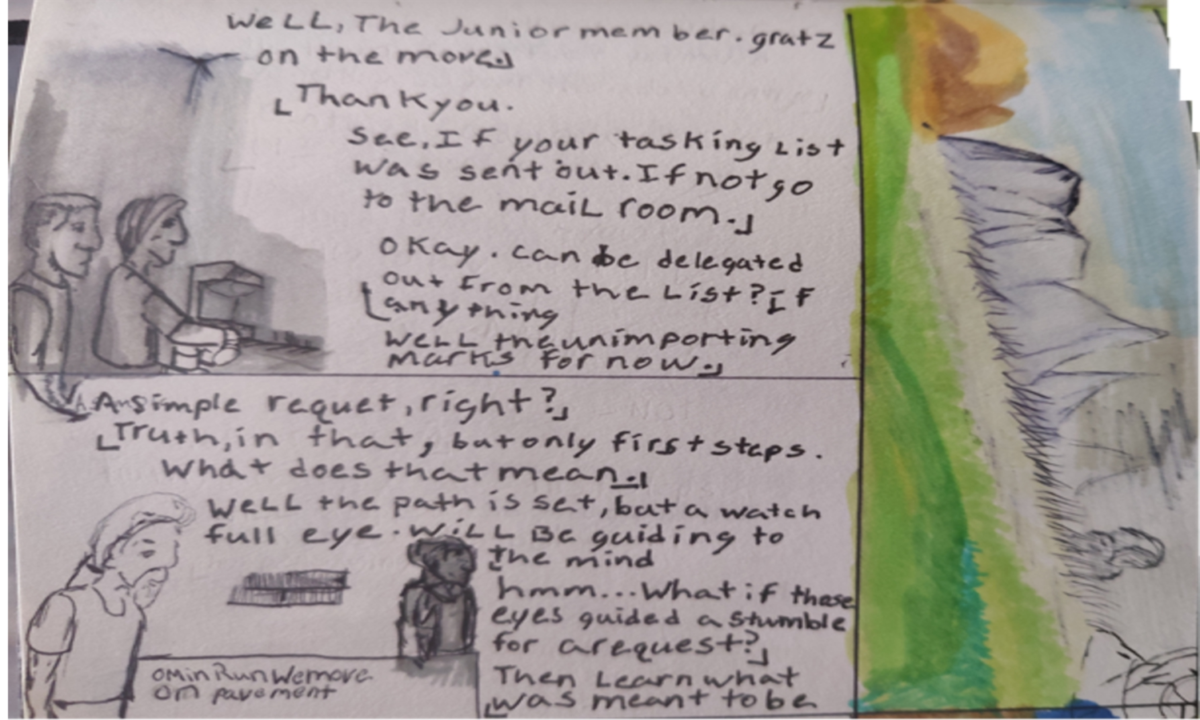 WeLL, The Junior member. gratz
on the move.
Thank you.
See, If your tasking List
was sent out. If not go
to the maiL room.
Okay. can be delegated
out from the List? If
any thing
WeLL the unimporting
marks for now.
A simple requet, right?
Truth, in that, but only first steps.
What does that mean.
WeLL the path is set, but a watch
full eye. WiLL Be guiding to
the mind
hmm... What if these
eyes guided a stumble
for a request?
Then Learn what
was meant to be
OMinRunWemove
on pavement